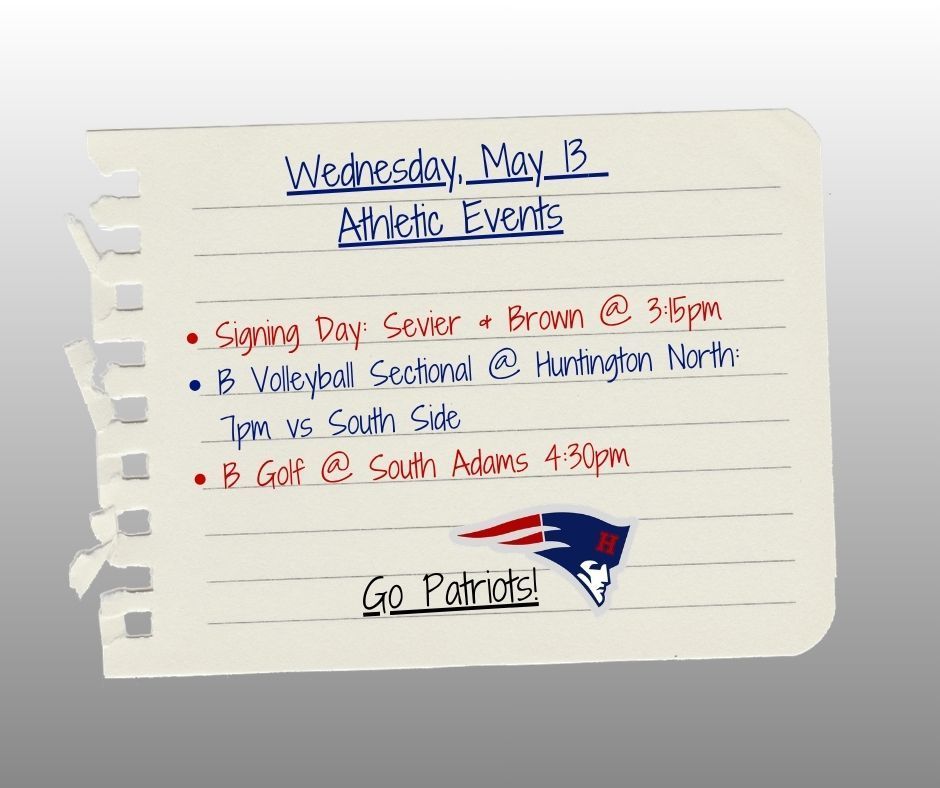 Wednesday, May 13
Athletic Events
• Signing Day: Sevier & Brown @ 3:15pm
• B Volleyball Sectional @ Huntington North:
7pm vs South Side
• B Golf @ South Adams 4:30pm
H
Go Patriots!